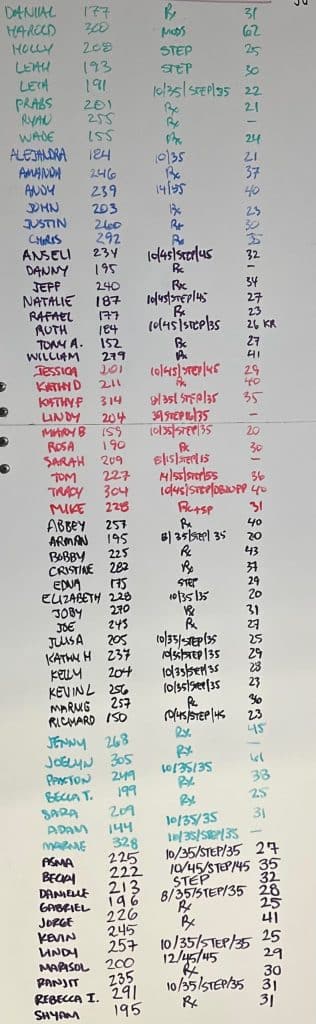 DANIAL 177 Rx 31
HAROLD 300 MODS 62
HOLLY 208 STEP 25
LEAH 193 STEP 30
LETA 191 10/35/STEP/35 22
PRABS 201 Rx 21
RYAN 255 Rx –
WADE 155 Rx 24
ALEJANDRA 184 10/35 21
AMANDA 246 Rx 37
ANDY 239 14/35 40
JOHN 203 Rx 23
JUSTIN 260 Rx 30
CHRIS 292 Rx 35
ANSELI 234 10/45/STEP/45 32
DANNY 195 Rx –
JEFF 240 Rx 34
NATALIE 187 10/45/STEP/45 27
RAFAEL 177 Rx 23
RUTH 184 10/45/STEP/35 26 KR
TONY A. 152 Rx 27
WILLIAM 279 Rx 41
JESSICA 201 10/45/STEP/45 29
KATHY D 211 Rx 40
KATHY F 314 8/35/STEP/35 35
LINDY 204 –
MARY B 159 10/35/STEP/35 20
ROSA 190 Rx 30
SARAH 209 8/15/STEP/15 –
TOM 227 14/55/STEP/55 36
TRACY 304 40
MIKE 228 Rx+SP 31
ABBEY 257 Rx 40
ARMAN 195 8/35/STEP/35 20
BOBBY 225 Rx 43
CRISTINE 282 Rx 37
EDNA 175 STEP 29
ELIZABETH 228 10/35/35 20
JOBY 270 Rx 31
JOE 245 Rx 27
JULISA 205 10/35/STEP/35 25
KATHY H 237 10/35/STEP/35 29
KELLY 204 10/35/STEP/35 28
KEVIN L 256 10/35/STEP/35 23
MARNIG 257 Rx 36
RICHARD 150 10/45/STEP/45 23
JENNY 268 Rx 45
JOELYN 305 Rx –
PAXTON 249 10/35/35 41
BECCA T. 199 Rx 38
SARA 209 Rx 25
ADAM 144 10/35/35 31
MARNIE 328 10/35/STEP/35 –
ASMA 225 10/35/STEP/35 27
BECKY 222 10/45/STEP/45 35
DANIELLE 213 STEP 32
GABRIEL 196 8/35/STEP/35 28
JORGE 226 Rx 25
KEVIN 245 Rx 41
LINDY 257 10/35/STEP/35 25
MARISOL 200 12/45/45 29
RANJIT 235 Rx 30
REBECCA I. 291 10/35/STEP/35 31
SHYAM 195 Rx 31